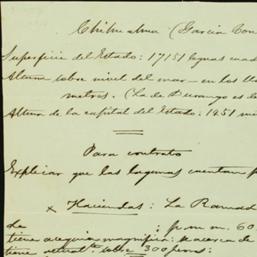 Chihuahua (Garcia Con
Superficie del Estado: 17151 leguas cuad
Altura sobre nivel del mar — en los
metros. (La de Durango es
Altura de la capital del Estado: 1451 m
Para contrato
Explicar que las lagunas cuentan p
x Haciendas: La Ramad
de p.m.m. 60
tiene acequia magnifica: acerca de
tiene sobre 300 pesos: